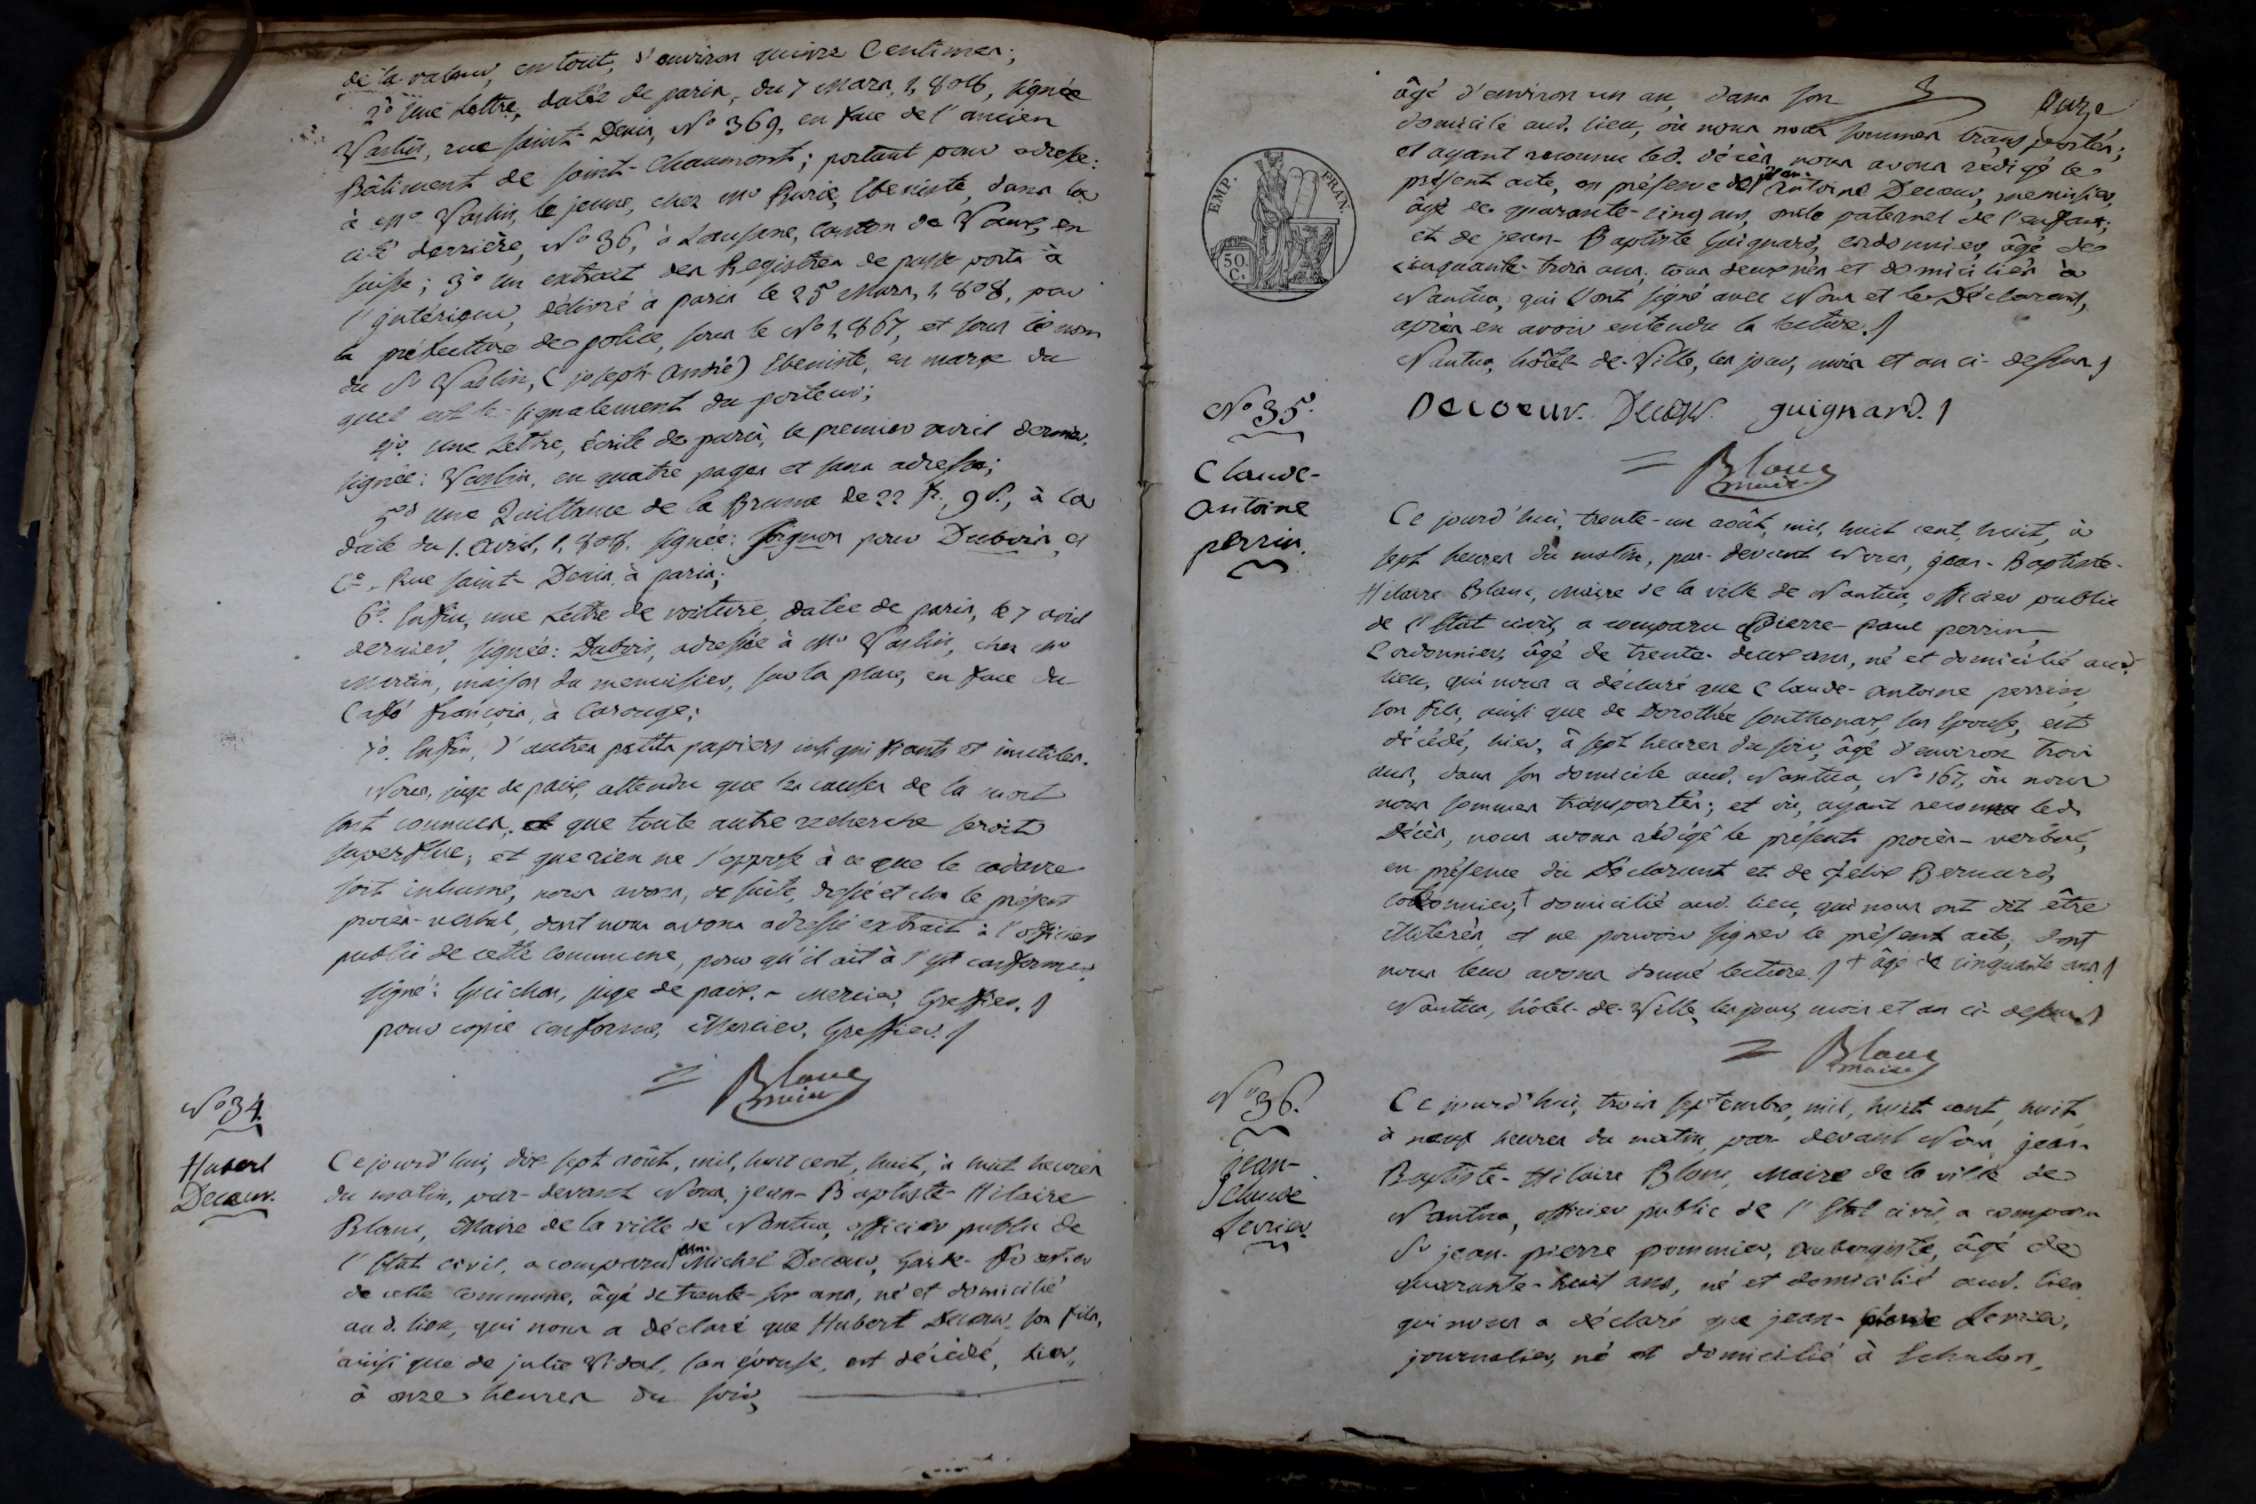 de la valeur, en tout, d'environ quinze Centimes;
2.º Une Lettre, datée de paris, du 7 Mars, 1,808, signée
Vaslin, rue saint-Denis, Nº 369, en face de l'ancien
Bâtiment de saint-Chaumont; portant pour adresse:
à Mr Vaslin, le jeune, chez Mr Burié, Ebeniste, dans la
cité derrière, Nº 36, à Lausane, canton de Vaux, en
suisse; 3º Un extrait des Registres de passe-ports à
l'intérieur, délivré à paris le 25 Mars, 1,808, par
la préfecture de police, sous le Nº 1,867, et sous le nom
du Sr Vaslin, (joseph-andré) Ebeniste, en marge du
quel est le signalement du porteur;
4º. Une Lettre, écrite de paris, le premier avril dernier.
signée: Vaslin, en quatre pages et sans adresse;
5º Une Quittance de la somme de 22 fr., 9 s., à la
date du 1. avril, 1,808. signée: pour Dubois et
Cº. Rue saint-Denis, à paris;
6º. Enfin, une Lettre de voiture, datée de paris, le 7 avril
dernier, signée: Dubois, adressée à Mr Vaslin, chez Mr
Martin, maison du menuisier, sur la place, en face du
Caffé françois, à Carouge;
7º. Enfin, d'autres petits papiers insignifiants et inutiles.
Nous, juge de paix, attendu que les causes de la mort
sont connues, et que toute autre recherche seroit
superflue; et que rien ne s'oppose à ce que le cadavre
soit inhumé, nous avons, de suite, dressé et clos le présent
procès-verbal, dont nous avons adressé extrait à l'officier
public de cette commune, pour qu'il ait à s'y conformer.
signé: Guichon, juge de paix. - Mercier, Greffier.
pour copie conforme, Mercier, Greffier.
Blanc
maire
Nº 34.
Hubert
Decoeur.
Ce jourd'hui, dix sept août, mil, huit cent, huit, à huit heures
du matin, par-devant Nous, jean-Baptiste-Hilaire
Blanc, Maire de la ville de Nantua, officier public de
l'Etat civil, a comparu jean-Michel Decoeur, Garde-forestier
de cette commune, âgé de trente-six ans, né et domicilié
aud. lieu, qui nous a déclaré que Hubert Decoeur, son fils,
ainsi que de julie Vidal, son épouse, est décédé, hier,
à onze heures du soir,
âgé d'environ un an, dans son
Onze
domicile aud. lieu, où nous nous sommes transportés;
et ayant reconnu led. décès, nous avons rédigé le
présent acte, en présence de jean-Antoine Decoeur, menuisier,
âgé de quarante-cinq ans, oncle paternel de l'enfant;
et de jean-Baptiste Guignard, cordonnier, âgé de
cinquante-trois ans; tous deux nés et domiciliés à
Nantua; qui l'ont signé avec Nous et le Déclarant,
après en avoir entendu la lecture.
Nantua, hôtel-de-Ville, les jour, mois et an ci-dessus
EMP. FRAN.
50
C.
Decoeur. Decoeur. guignard.
Blanc
maire
Nº 35.
Claude-
antoine
perrin.
Ce jourd'hui, trente-un août, mil, huit cent, huit, à
sept heures du matin, par-devant Nous, jean-Baptiste-
Hilaire Blanc, Maire de la ville de Nantua, officier public
de l'Etat civil, a comparu Pierre-paul perrin,
Cordonnier, âgé de trente-deux ans, né et domicilié aud.
lieu, qui nous a déclaré que Claude-antoine perrin,
son fils, ainsi que de Dorothée Sonthonax, son Epouse, est
décédé, hier, à sept heures du soir, âgé d'environ trois
ans, dans son domicile aud. Nantua, Nº 167, où nous
nous sommes transportés; et où, ayant reconnu led.
Décès, nous avons rédigé le présent procès-verbal,
en présence du Déclarant et de félix Bernard,
cordonnier,+ domicilié aud. lieu, qui nous ont dit être
illitérés, et ne pouvoir signer le présent acte, dont
nous leur avons donné lecture. + âgé de cinquante ans
Nantua, hôtel-de-Ville, les jour, mois et an ci-dessus
Blanc
maire
Nº 36.
jean-
Claude
Levrier.
Ce jourd'hui, trois septembre, mil, huit cent, huit,
à neuf heures du matin, par-devant Nous, jean-
Baptiste-Hilaire Blanc, Maire de la ville de
Nantua, officier public de l'Etat civil, a comparu
Sr jean-pierre pommier, Aubergiste, âgé de
quarante-huit ans, né et domicilié aud. lieu,
qui nous a déclaré que jean- Levrier,
journalier, né et domicilié à Echalon,